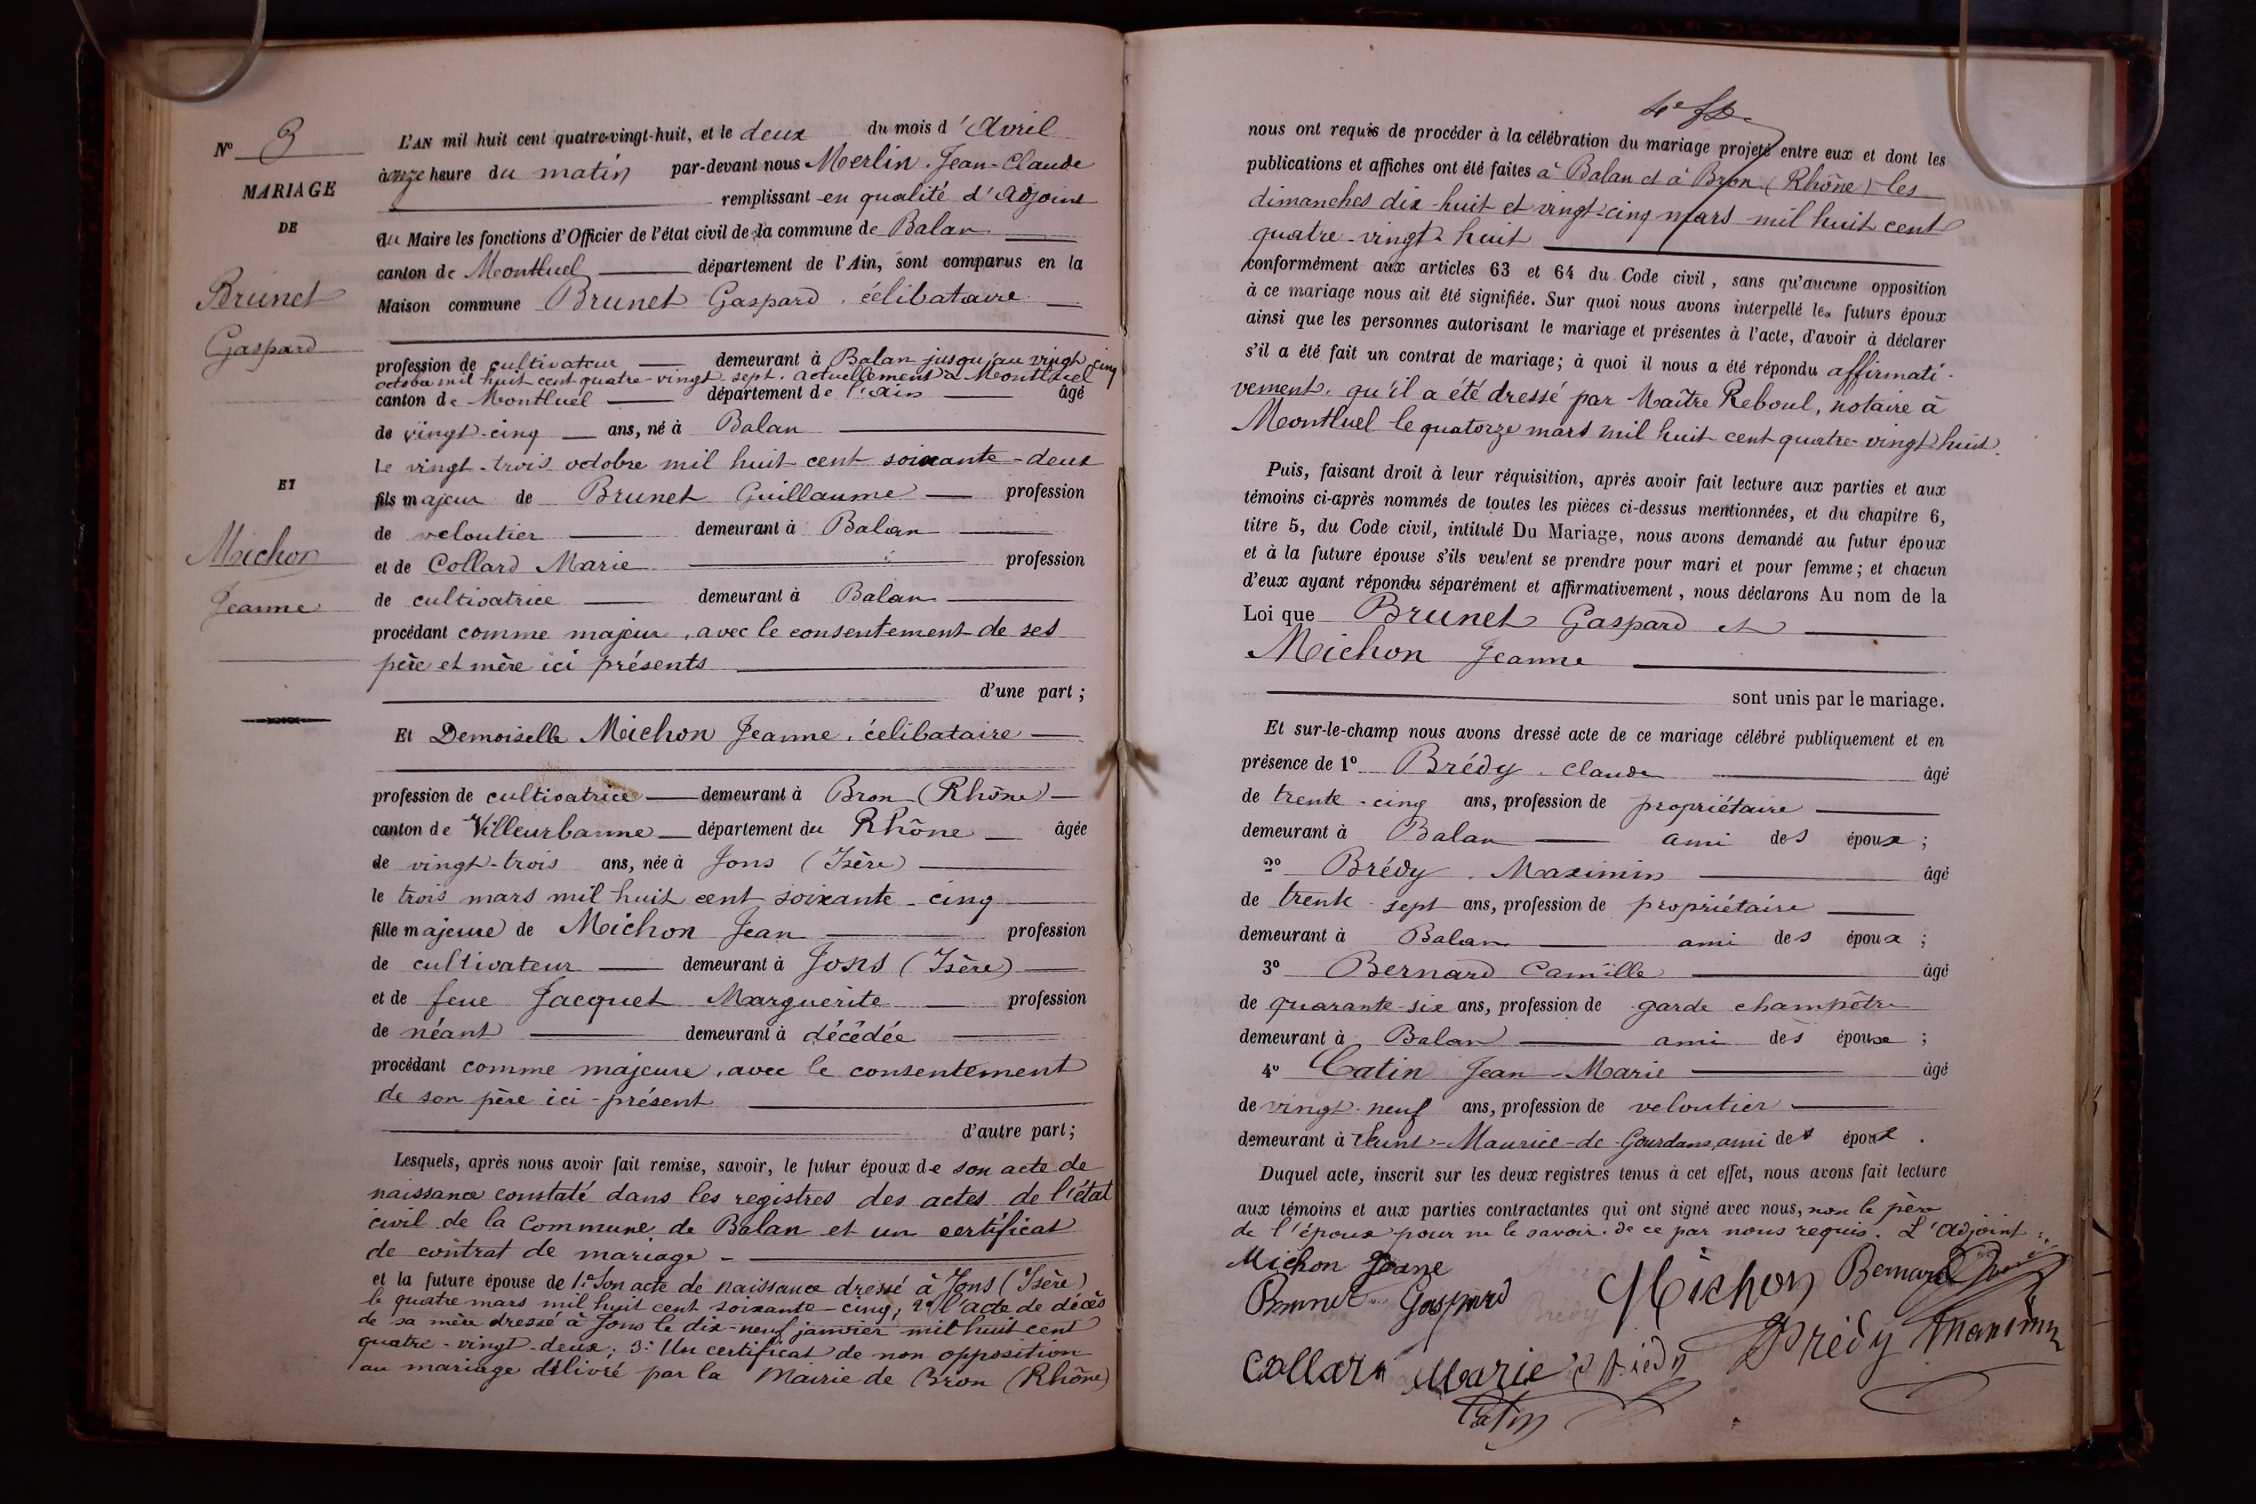 N° 3
MARIAGE
DE
Brunet
Gaspard
ET
Michon
Jeanne
L'AN mil huit cent quatre-vingt-huit, et le deux du mois d'Avril
à onze heure du matin par-devant nous Merlin Jean-Claude
remplissant en qualité d'adjoint
au Maire les fonctions d'Officier de l'état civil de la commune de Balan
canton de Montluel département de l'Ain, sont comparus en la
Maison commune Brunet Gaspard, célibataire
profession de cultivateur demeurant à Balan jusqu'au vingt cinq
octobre mil huit cent quatre-vingt-sept. actuellement à Montluel
canton de Montluel département de l'Ain âgé
de vingt-cinq ans, né à Balan
le vingt-trois octobre mil huit cent soixante-deux
fils majeur de Brunet Guillaume profession
de veloutier demeurant à Balan
et de Collard Marie profession
de cultivatrice demeurant à Balan
procédant comme majeur, avec le consentement de ses
père et mère ici présents
d'une part;
Et Demoiselle Michon Jeanne, célibataire
profession de cultivatrice demeurant à Bron (Rhône)
canton de Villeurbanne département du Rhône âgée
de vingt-trois ans, née à Jons (Isère)
le trois mars mil huit cent soixante-cinq
fille majeure de Michon Jean profession
de cultivateur demeurant à Jons (Isère)
et de feue Jacquet Marguerite profession
de néant demeurant à décédée
procédant comme majeure, avec le consentement
de son père ici-présent
d'autre part;
Lesquels, après nous avoir fait remise, savoir, le futur époux de son acte de
naissance constaté dans les registres des actes de l'état
civil de la Commune de Balan et un certificat
de contrat de mariage -
et la future épouse de 1° Son acte de naissance dressé à Jons (Isère)
le quatre mars mil huit cent soixante-cinq; 2° l'acte de décès
de sa mère dressé à Jons le dix-neuf janvier mil huit cent
quatre-vingt-deux; 3° Un certificat de non opposition
au mariage délivré par la Mairie de Bron (Rhône)
nous ont requis de procéder à la célébration du mariage projeté entre eux et dont les
publications et affiches ont été faites à Balan et à Bron (Rhône) les
dimanches dix-huit et vingt-cinq mars mil huit cent
quatre-vingt-huit
conformément aux articles 63 et 64 du Code civil, sans qu'aucune opposition
à ce mariage nous ait été signifiée. Sur quoi nous avons interpellé les futurs époux
ainsi que les personnes autorisant le mariage et présentes à l'acte, d'avoir à déclarer
s'il a été fait un contrat de mariage; à quoi il nous a été répondu affirmati-
vement, qu'il a été dressé par Maître Reboul, notaire à
Montluel le quatorze mars mil huit cent quatre-vingt huit.
Puis, faisant droit à leur réquisition, après avoir fait lecture aux parties et aux
témoins ci-après nommés de toutes les pièces ci-dessus mentionnées, et du chapitre 6,
titre 5, du Code civil, intitulé Du Mariage, nous avons demandé au futur époux
et à la future épouse s'ils veulent se prendre pour mari et pour femme; et chacun
d'eux ayant répondu séparément et affirmativement, nous déclarons Au nom de la
Loi que Brunet Gaspard et
Michon Jeanne
sont unis par le mariage.
Et sur-le-champ nous avons dressé acte de ce mariage célébré publiquement et en
présence de 1° Brédy Claude âgé
de trente-cinq ans, profession de propriétaire
demeurant à Balan ami des époux;
2° Brédy Maximin âgé
de trente-sept ans, profession de propriétaire
demeurant à Balan ami des époux;
3° Bernard Camille âgé
de quarante-six ans, profession de garde champêtre
demeurant à Balan ami des époux;
4° Catin Jean-Marie âgé
de vingt-neuf ans, profession de veloutier
demeurant à Saint-Maurice-de-Gourdans, ami des époux.
Duquel acte, inscrit sur les deux registres tenus à cet effet, nous avons fait lecture
aux témoins et aux parties contractantes qui ont signé avec nous, non le père
de l'époux pour ne le savoir. de ce par nous requis. L'Adjoint
Michon Jeane
Brunet Gaspard Michon Bernard
Collard Marie Brédy Brédy Maximin
Catin